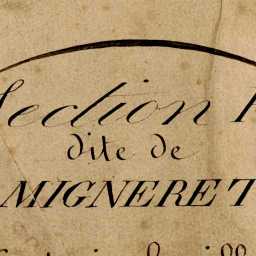 Section
dite de
MIGNERET